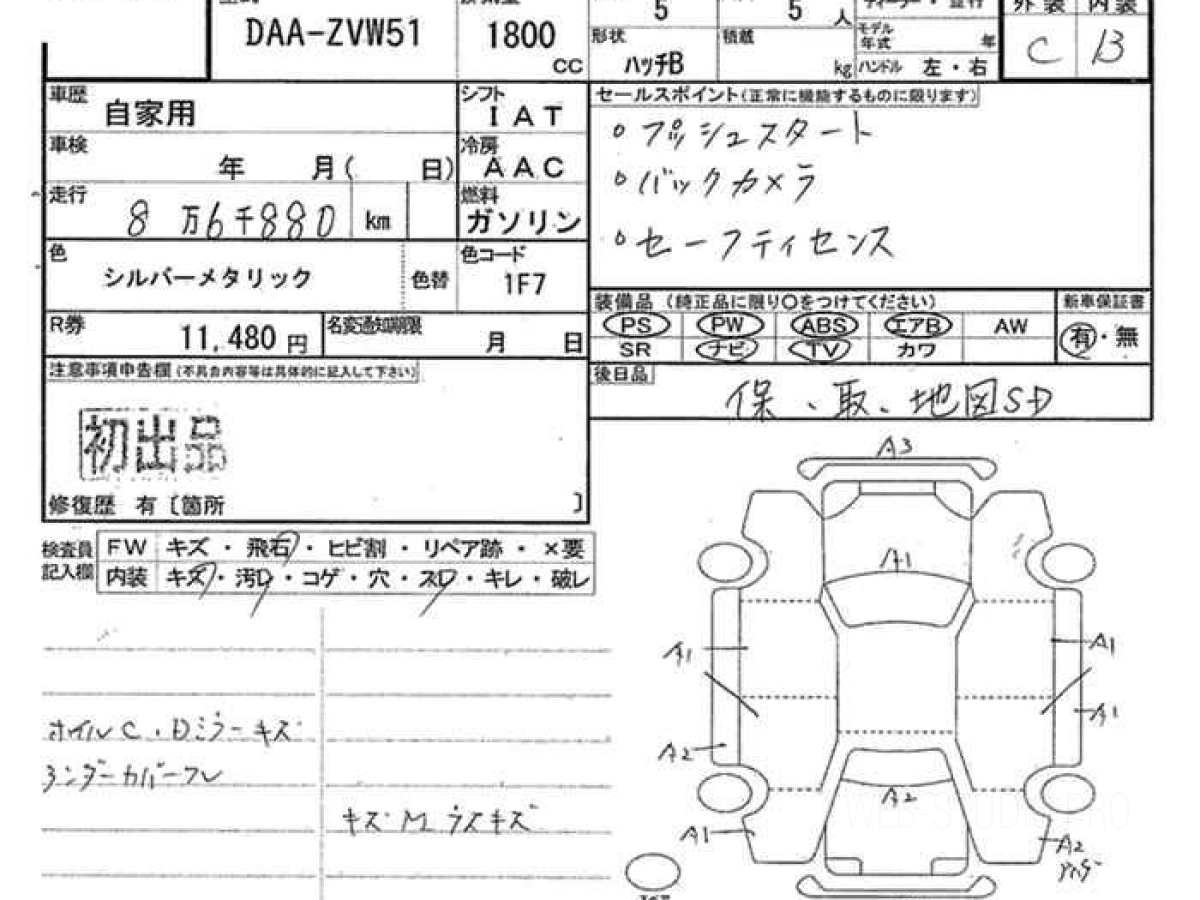 DAA-ZVW51
1800
CC
5
5
人
形状
ハッチB
積載
kg
モデル
年式
年
ハンドル 左・右
外装 内装
C B
車歴
自家用
車検
年 月( 日)
走行
8 万6千880 km
色
シルバーメタリック
色替
R券
11,480 円
名変通知期限
月 日
シフト
IAT
冷房
AAC
燃料
ガソリン
色コード
1F7
セールスポイント(正常に機能するものに限ります)
○プッシュスタート
○バックカメラ
○セーフティセンス
装備品 (純正品に限り○をつけてください)
PS PW ABS エアB AW
SR ナビ TV カワ
新車保証書
有・無
後日品
保、取、地図SD
注意事項申告欄(不具合内容等は具体的に記入して下さい)
初出品
修復歴 有〔箇所 〕
検査員
記入欄
FW キズ・飛石・ヒビ割・リペア跡・×要
内装 キズ・汚レ・コゲ・穴・スレ・キレ・破レ
ホイルC、Dミラーキズ
アンダーカバーワレ
A3
A1
A1
A1
A1
A2
A2
A1
A2
WEB STUDY PRO